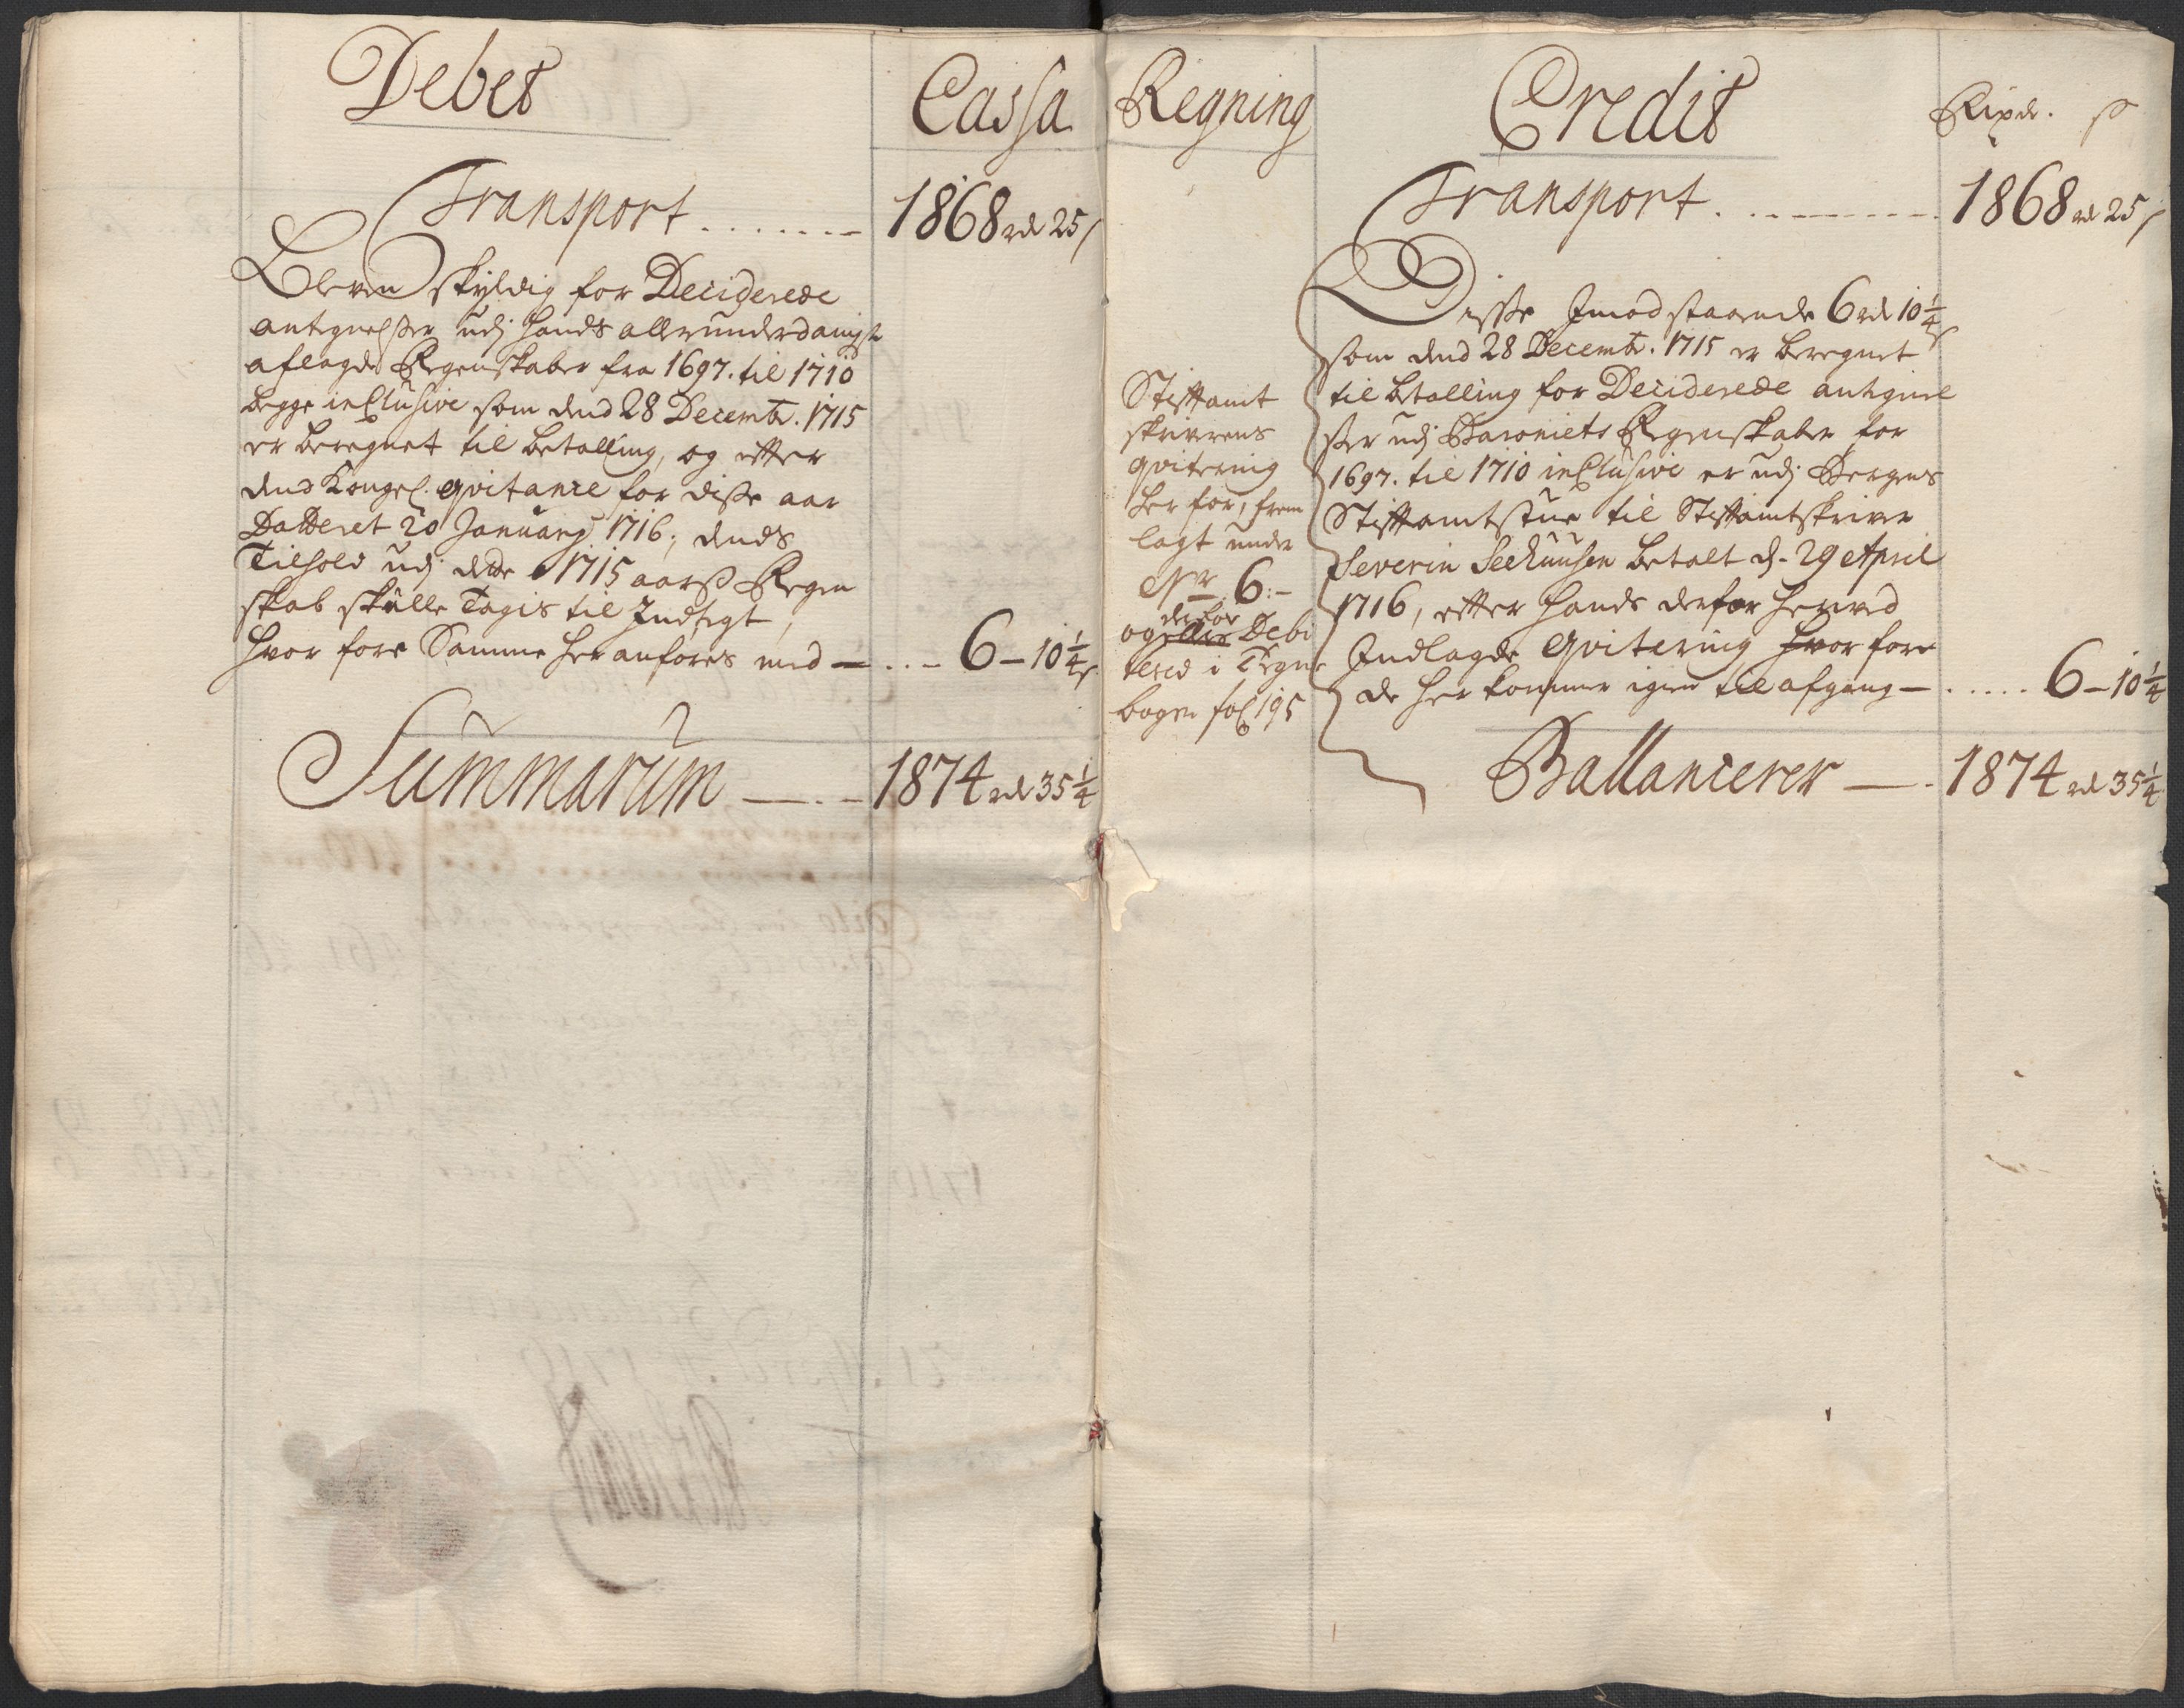 Debet
Cassa
Transport
1868 rd 25 s
Bleven skyldig for Deciderede
antegnelsser udj hands allerunderdanigst
aflagde Regenskaber fra 1697. til 1710
begge inclusive som dend 28 Decembr. 1715
er beregnet til betalling, og effter
dend Kongel. qvitance for disse aar
Datteret 20 January 1716, dends
Tilhold udj dette 1715 aars Regen
skab skulle Tagis til Indtegt,
hvor fore Samme her anføres med — 6 – 10 1/4 s
Summarum — 1874 rd 35 1/4
Regning
Credit
Rixdr. s
Transport
1868 rd 25 s
Stifftamt
skriverens
qvitering
her for, frem
lagt under
Nr 6:–
derfor
og Debi
tered i Tegne
bogen fol 195
Disse Imod staaende 6 rd 10 1/4 s
som dend 28 Decembr. 1715 er beregnet
til betalling for Deciderede antegnel
sser udj Baroniets Regenskaber for
1697. til 1710 inclusive er udj Bergens
Stifftamtstue til Stifftamtskriver
Severin Seehuusen betalt d. 29 April
1716, effter hands derfor herved
Indlagde qvitering hvor fore
de her kommer igien til afgang — 6 – 10 1/4
Ballancerer — 1874 rd 35 1/4